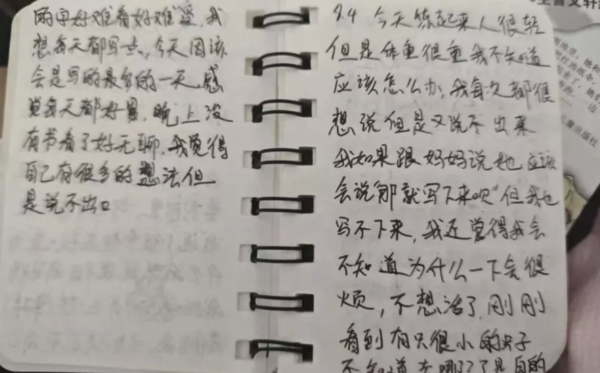 好难看好难受，我
想每天都写一点，今天因该
会是写的最多的一天，感
觉每天都好累，晚上没
有书看了好无聊，我觉得
自己有很多的想法但
是说不出口
9.4 今天练起来人很轻
但是体重很重我不知道
应该怎么办，我每次都很
想说但是又说不出来
我如果跟妈妈说她应该
会说“那就写下来呗”但我也
写不下来，我还觉得我会
不知道为什么一下会很
烦，不想活了，刚刚
看到有只很小的虫子
不知道去哪了了是自的